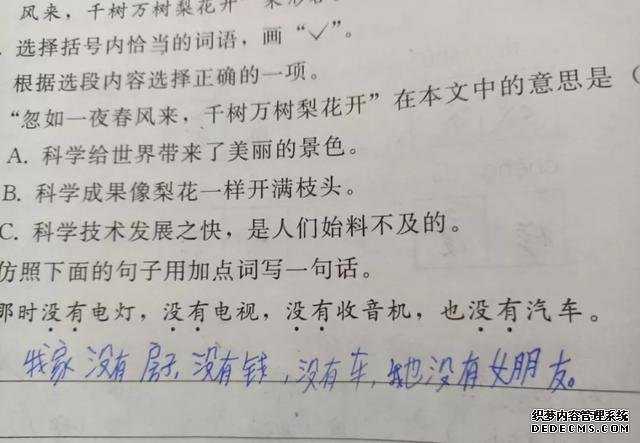 风来，千树万树梨花开”
选择括号内恰当的词语，画“✓”。
根据选段内容选择正确的一项。
“忽如一夜春风来，千树万树梨花开”在本文中的意思是（
A. 科学给世界带来了美丽的景色。
B. 科学成果像梨花一样开满枝头。
C. 科学技术发展之快，是人们始料不及的。
仿照下面的句子用加点词写一句话。
那时没有电灯，没有电视，没有收音机，也没有汽车。
我家没有房子，没有钱，没有车，也没有女朋友。
织梦内容管理系统
DEDECMS.COM